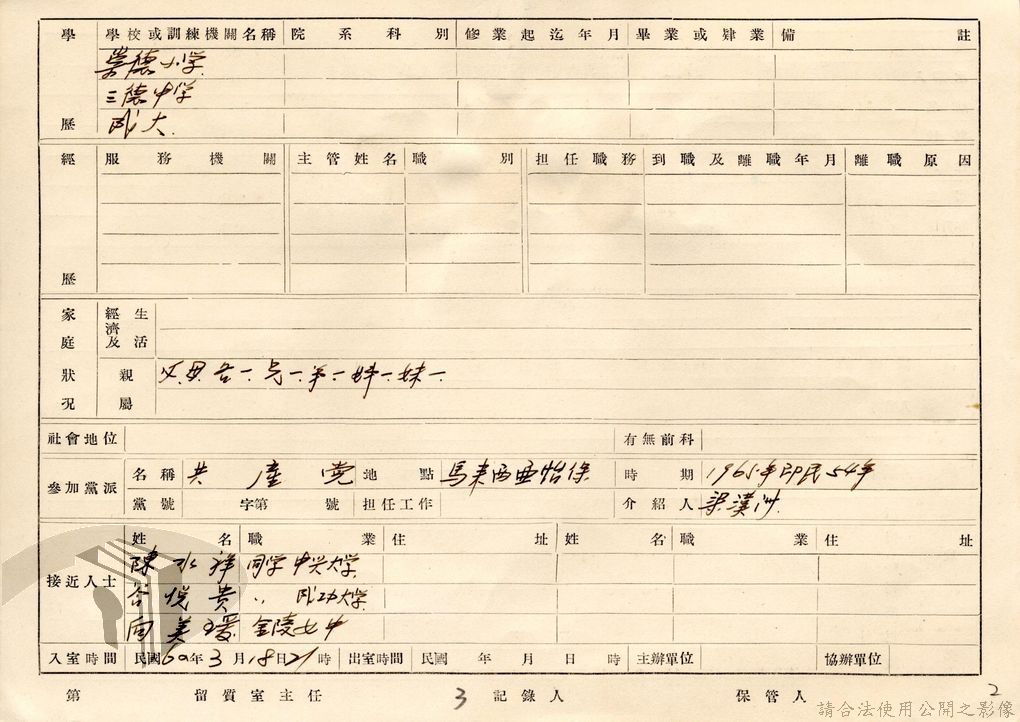 學 學校或訓練機關名稱 院系科別 修業起迄年月 畢業或肄業 備註
崇德小学
三德中学
歷 成大
經 服務機關 主管姓名 職別 担任職務 到職及離職年月 離職原因
歷
家庭 經濟及生活
狀況 親屬 父.母各一.兄一.弟一.姊一.妹一.
社會地位 有無前科
參加黨派 名稱 共產党 地點 馬来西亜怡保 時期 1965年即民54年
黨號 字第 號 担任工作 介紹人 梁漢
接近人士 姓名 職業 住址 姓名 職業 住址
陳水祥 同学中兴大学
悅貴 〃 成功大学
美瑗 金陵女中
入室時間 民國60年3月18日21時 出室時間 民國 年 月 日 時 主辦單位 協辦單位
第 留質室主任 3 記錄人 保管人 2
請合法使用公開之影像